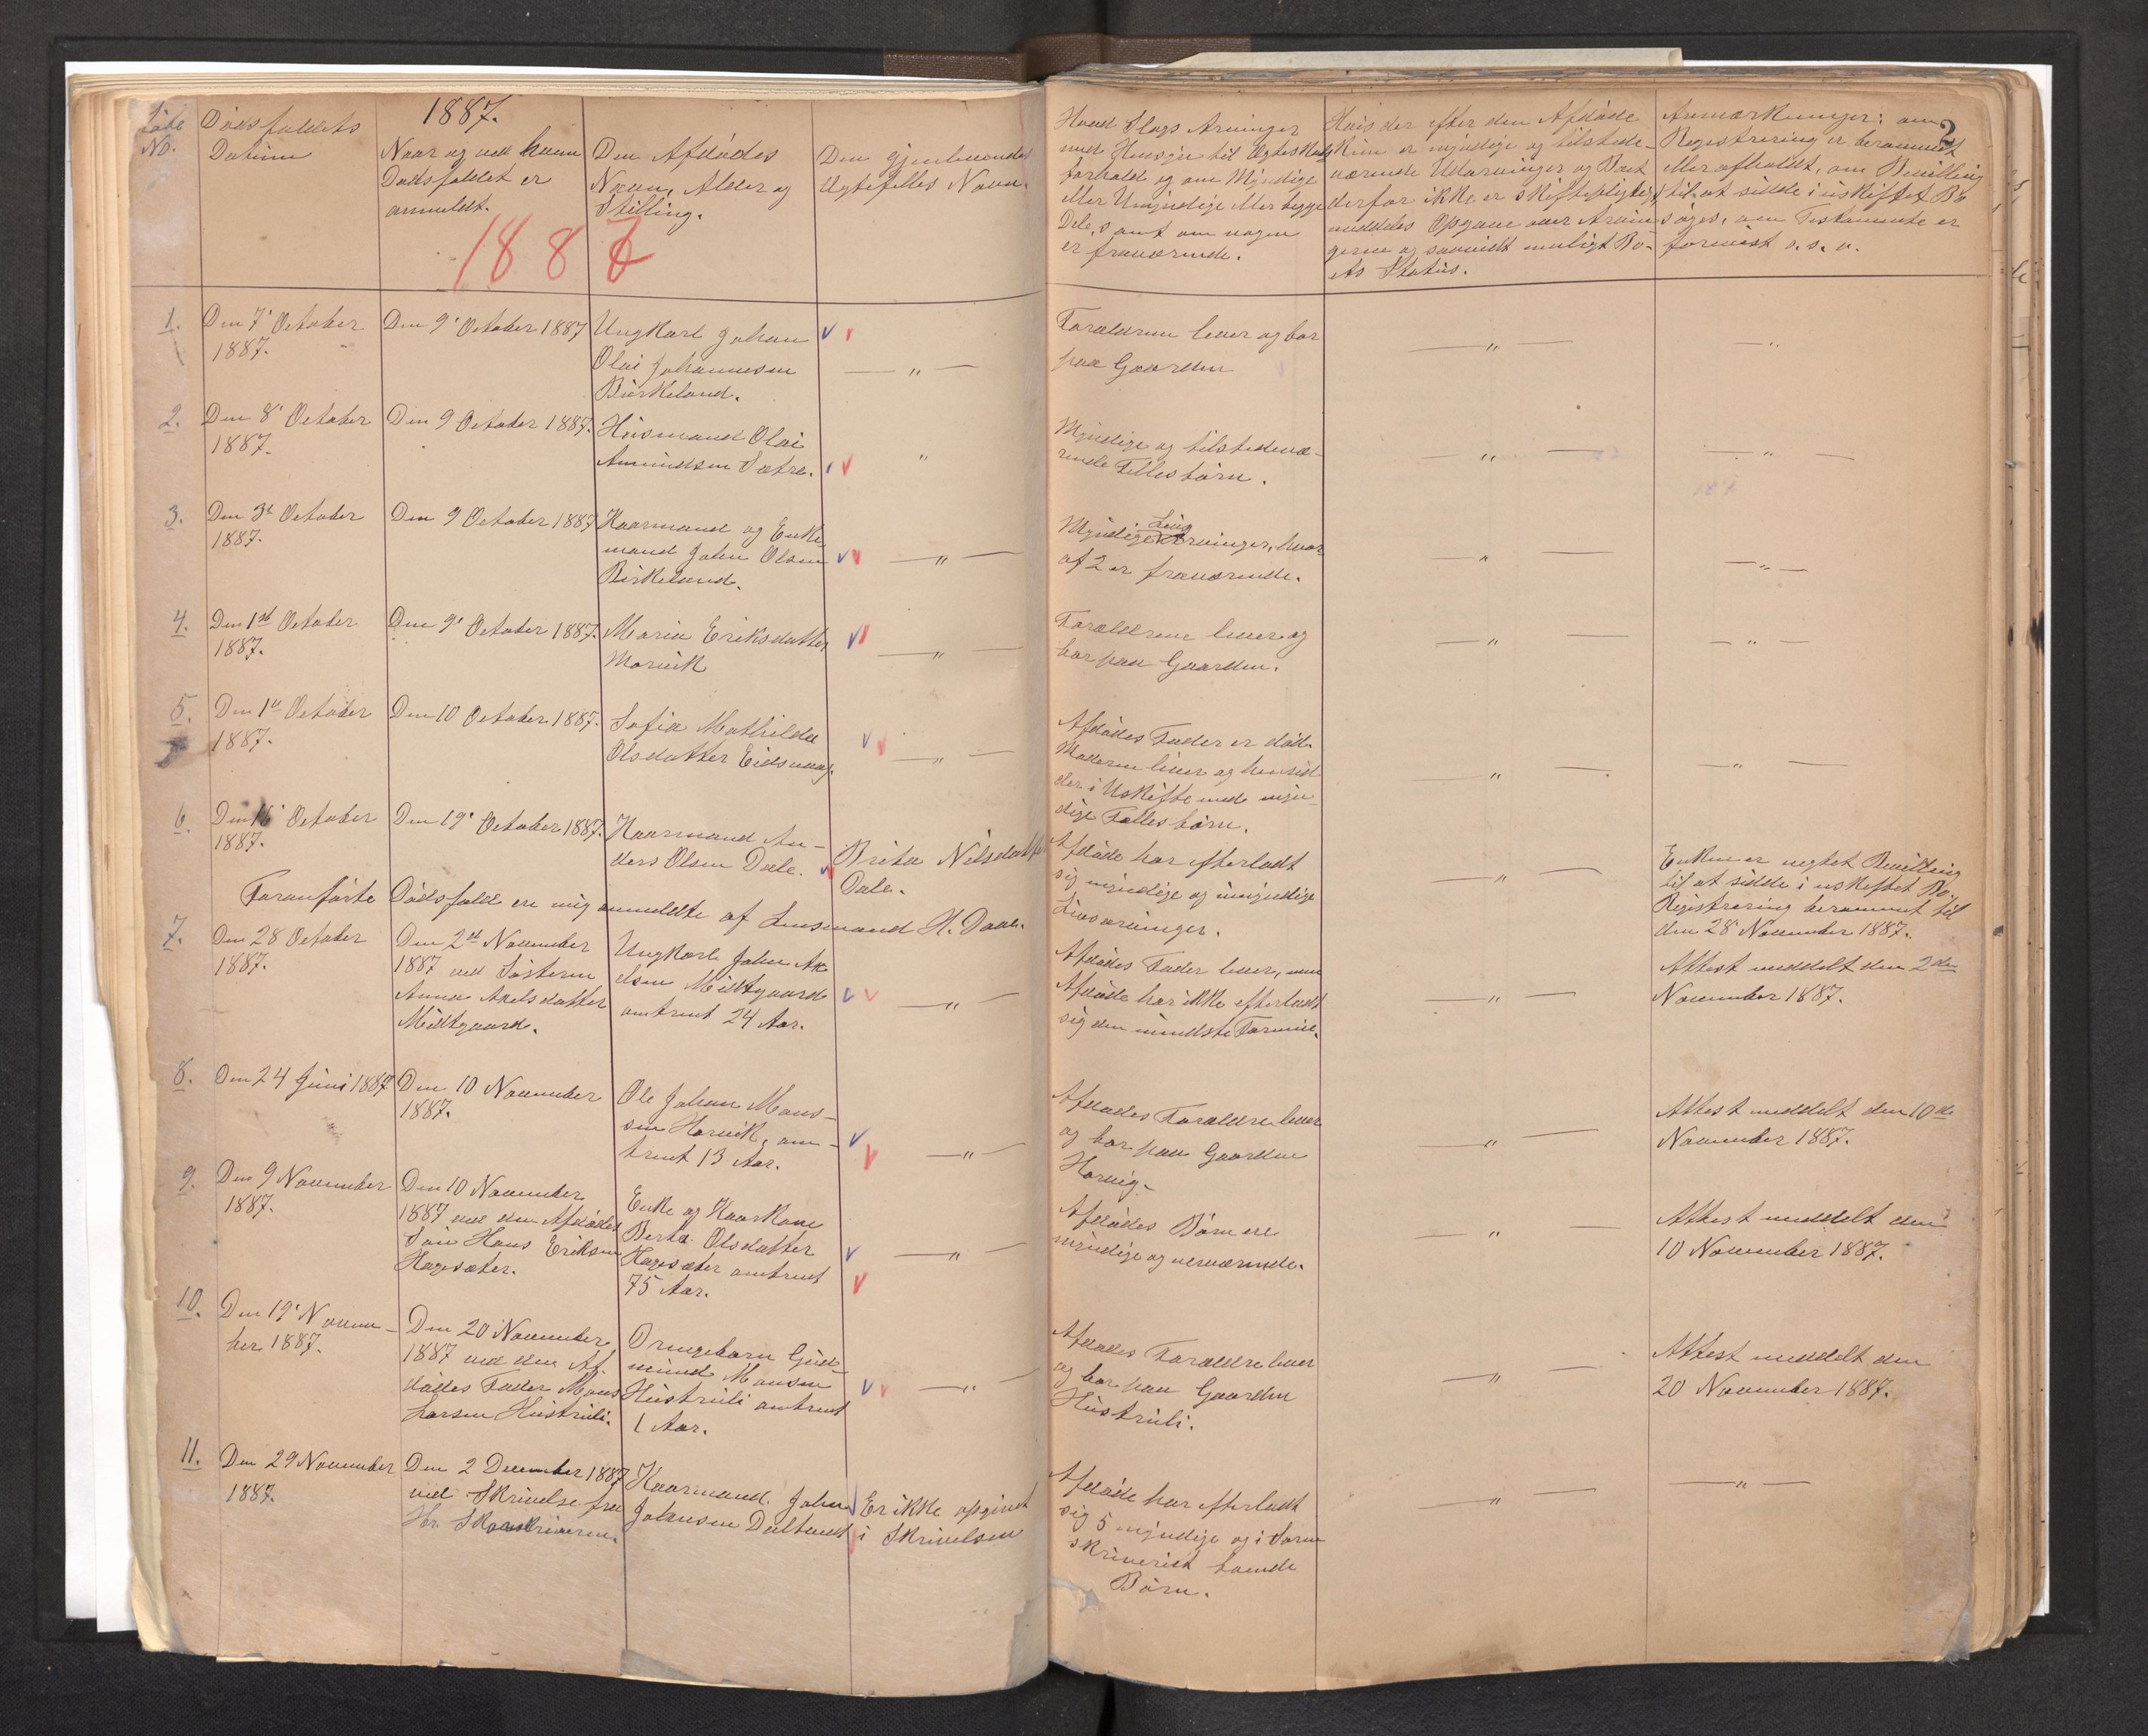 1887.
Löbe
No.
Dödsfaldets
Datum
Naar og ved hvem
Dødsfaldet er
anmeldt.
Den Afdødes
Navn, Alder og
Stilling.
Den gjenlevendes
Ægtefelles Navn.
Hvad Slags Arvinger
med Hensyn til Ægteskabs
forhold og om Myndige
eller Umyndige eller begge
Dele, samt om nogen
er fraværende.
Hvis der efter den Afdøde
kun er myndige og tilstede-
værende Udarvinger og Boet
derfor ikke er skiftepligtigt
meddeles Opgave over Arvin
gerne og saavidt muligt Bo-
ets Status.
Anmærkninger: om
Registrering er berammet
eller afholdt, om Bevilling
til at sidde i uskiftet Bo
søges, om Testamente er
forevist o. s. v.
2
1887
1.
Den 7' October
1887.
Den 9' October 1887
Ungkarl Johan
Olai Johannesen
Birkeland.
— " —
Forældrene lever og bor
paa Gaarden
— " —
— " —
2.
Den 8' October
1887.
Den 9 October 1887.
Husmand Olai
Amundsen Sætre.
"
Myndige og tilstedevæ-
rende Fellesbörn.
— " —
— " —
3.
Den 3d October
1887.
Den 9 October 1887
Kaarmand og Enke
mand John Olsen
Birkeland.
— " —
Livs
Myndige Arvinger, hvor
af 2 er fraværende.
— " —
— " —
4.
Den 1st October
1887.
Den 9' October 1887.
Maria Eriksdatter
Morvik
— " —
Forældrene lever og
bor paa Gaarden.
— " —
— " —
5.
Den 1st October
1887.
Den 10 October 1887.
Sofia Mathilda
Olsdatter Eidsvaag.
— " —
Afdödes Fader er död.
Moderen lever og hensid
der i Uskifte med myn-
dige Fellesbörn.
— " —
— " —
6.
Den 16' October
1887.
Den 19' October 1887.
Kaarmand An-
ders Olsen Dale.
Brita Nilsdatter
Dale.
Afdøde har efterladt
sig myndige og umyndige
Livsarvinger.
— " —
Enken er negtet Bevilling
til at sidde i uskiftet Bo,
Registrering berammet til
den 28' November 1887.
Foranførte Dødsfald ere mig anmeldte af Lensmand H. Daae.
7.
Den 28 October
1887.
Den 2d November
1887 ved Søsteren
Anna Axelsdatter
Midtgaard.
Ungkarl John Ax
elsen Midtgaard
omtrent 24 Aar.
— " —
Afdödes Fader lever, men
Afdøde har ikke efterladt
sig den mindste Formue.
— " —
Attest meddelt den 2den
November 1887.
8.
Den 24 Juni 1887
Den 10 November
1887.
Ole Johan Mons-
sen Horvik, om-
trent 13 Aar.
— " —
Afdødes Forældre lever
og bor paa Gaarden
Horvig.
— " —
Attest meddelt den 10de
November 1887.
9.
Den 9 November
1887.
Den 10 November
1887 ved den Afdødes
Søn Hans Eriksen
Hagesæter.
Enke og Kaarkone
Berta Olsdatter
Hagesæter omtrent
75 Aar.
— " —
Afdödes Börn ere
myndige og nærværende.
— " —
Attest meddelt den
10 November 1887.
10.
Den 19' Novem-
ber 1887.
Den 20 November
1887 ved den Af
dødes Fader Mons
Larsen Hüstruli.
Drengebarn Gud-
mund Monsen
Hüstruli omtrent
1 Aar.
— " —
Afdødes Forældre lever
og bor paa Gaarden
Hüstruli.
— " —
Attest meddelt den
20 November 1887.
11.
Den 29 November
1887.
Den 2 December 1887
ved Skrivelse fra
Hr. Skovskriveren.
Kaarmand John
Johnsen Dultund
Er ikke opgivet
i Skrivelsen
Afdøde har efterladt
sig 5 myndige og i Soren
skriveriet boende
Börn.
— " —
— " —